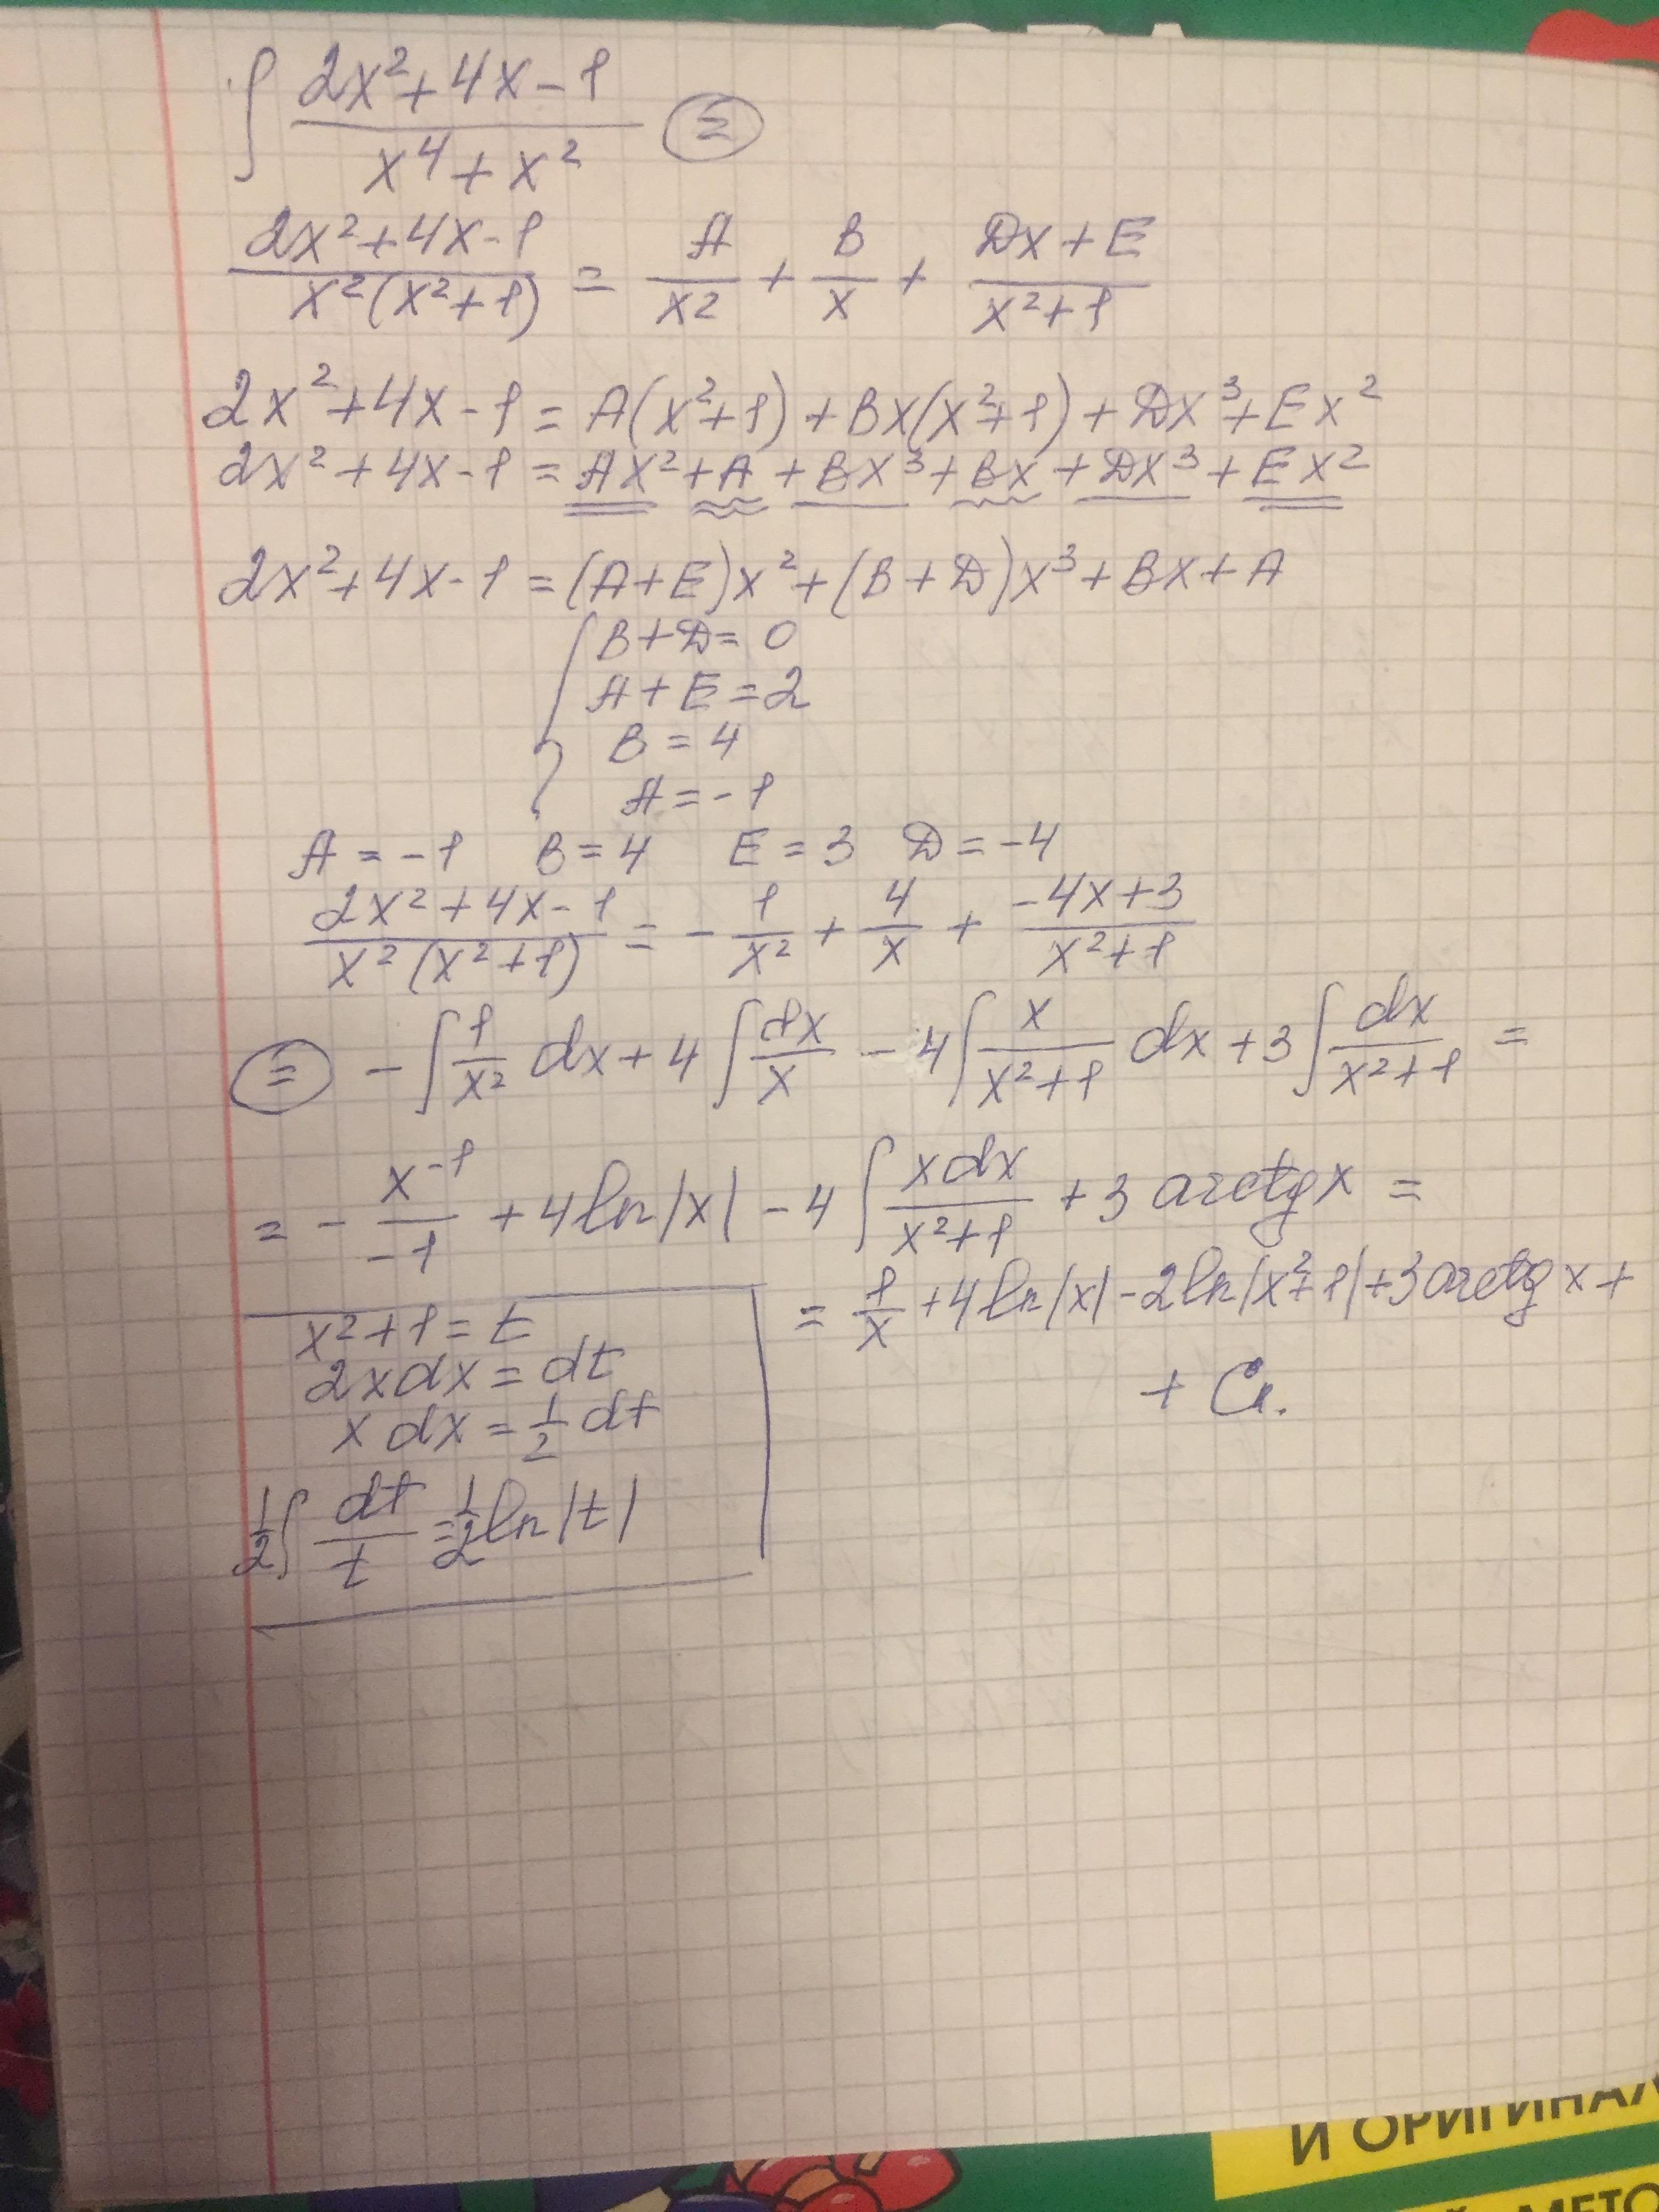 ∫ (2x²+4x-1)/(x⁴+x²) ⊜
(2x²+4x-1)/(x²(x²+1)) = A/x² + B/x + (Dx+E)/(x²+1)
2x²+4x-1 = A(x²+1)+Bx(x²+1)+Dx³+Ex²
2x²+4x-1 = Ax²+A+Bx³+Bx+Dx³+Ex²
2x²+4x-1 = (A+E)x²+(B+D)x³+Bx+A
{ B+D = 0
A+E = 2
B = 4
A = -1
A = -1 B = 4 E = 3 D = -4
(2x²+4x-1)/(x²(x²+1)) = - 1/x² + 4/x + (-4x+3)/(x²+1)
⊜ -∫ 1/x² dx + 4∫ dx/x - 4∫ x/(x²+1) dx + 3∫ dx/(x²+1) =
= - x⁻¹/-1 + 4ln|x| - 4∫ xdx/(x²+1) + 3 arctgx =
= 1/x + 4ln|x| - 2ln|x²+1| + 3arctg x +
+ C.
x²+1 = t
2xdx = dt
xdx = 1/2 dt
1/2 ∫ dt/t = 1/2 ln|t|
И ОРИГИНАЛ
МЕТО